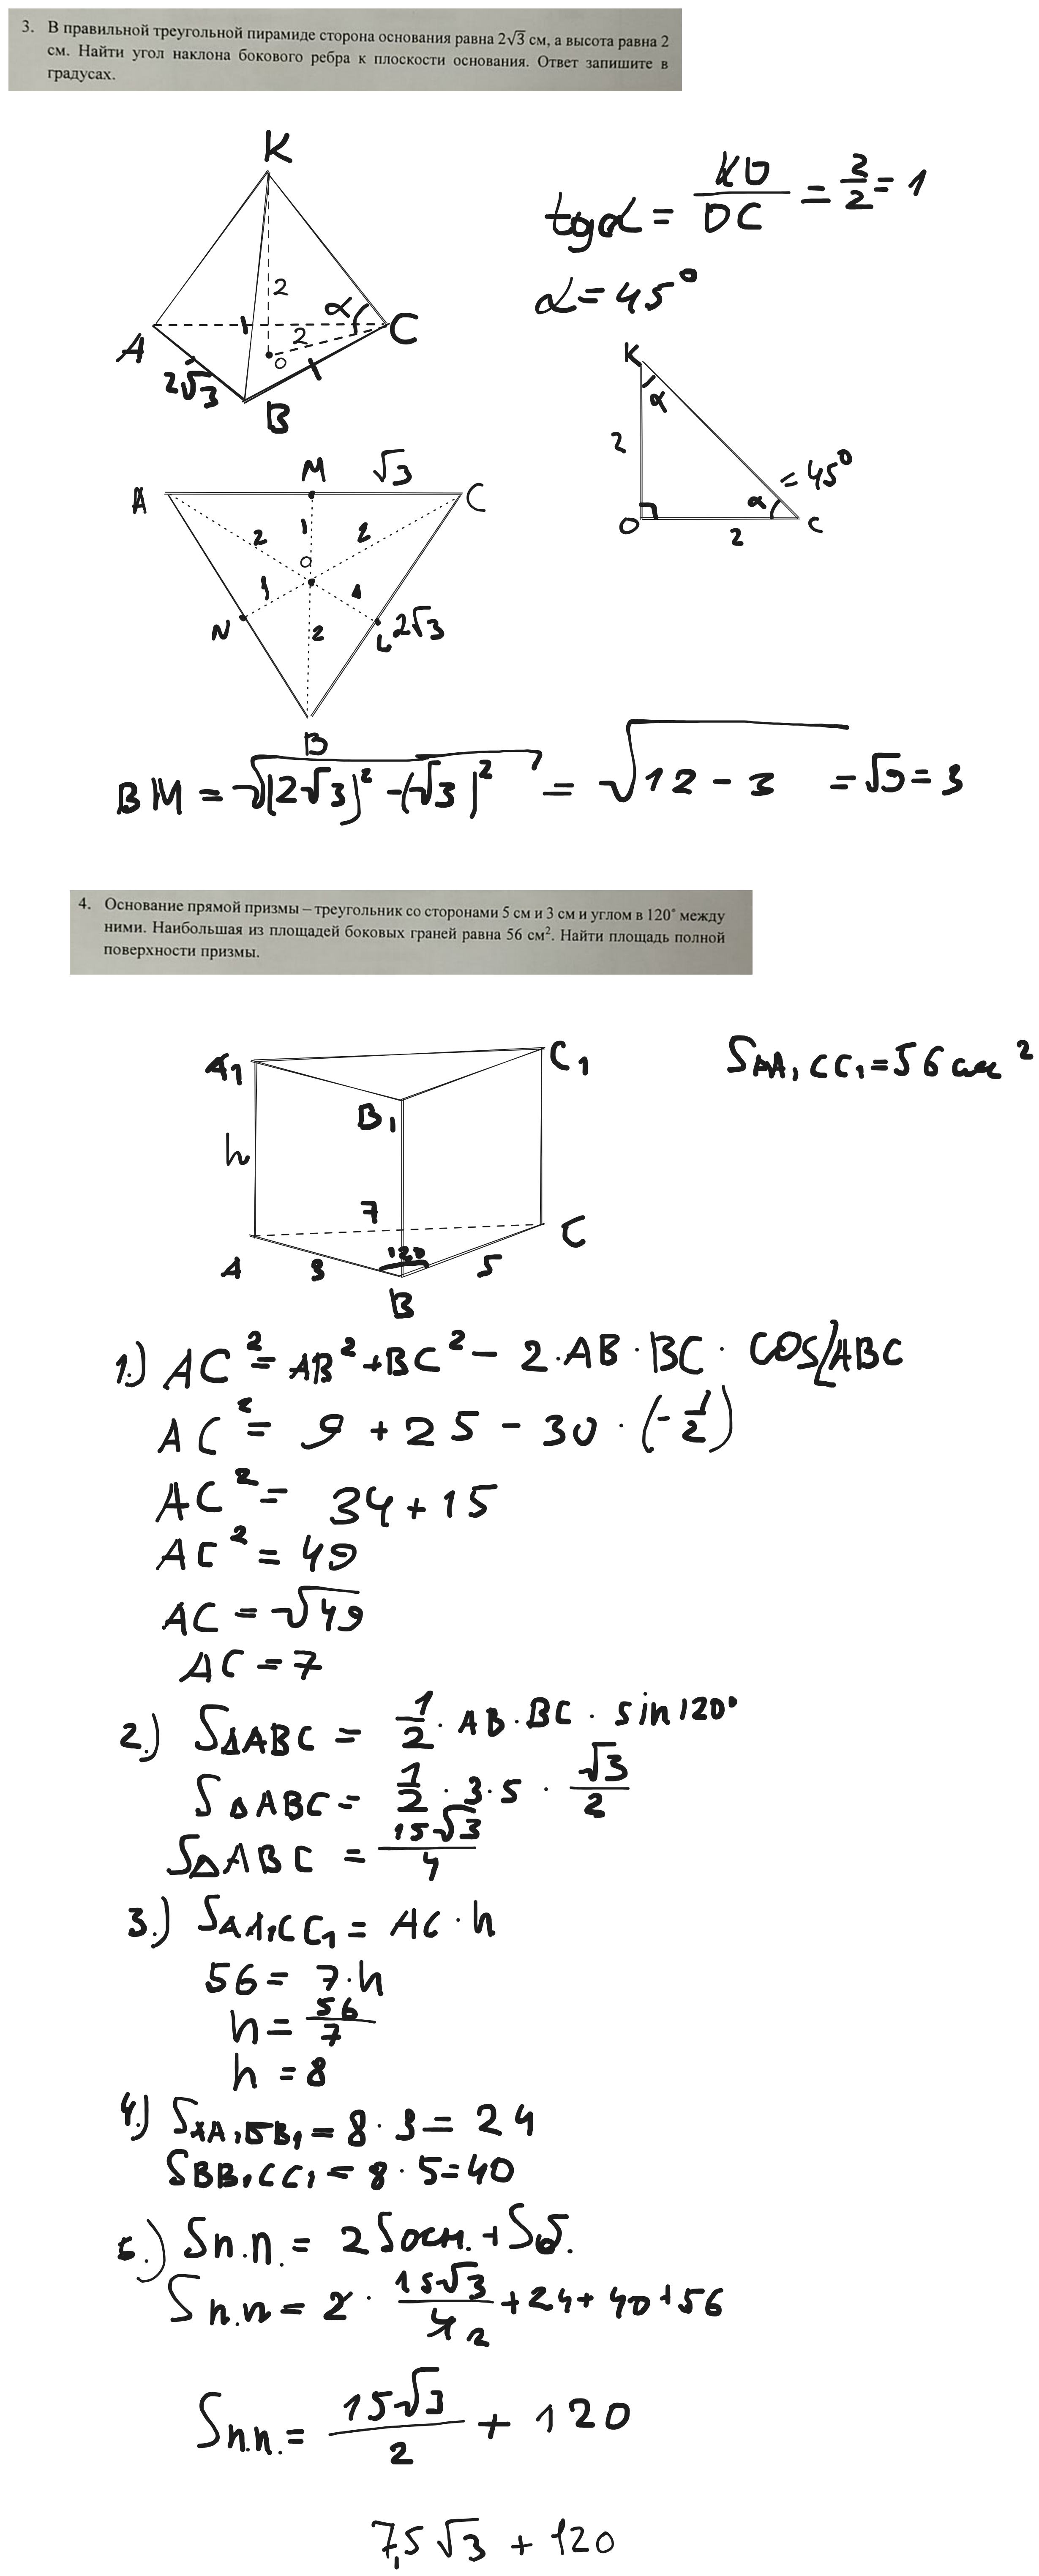 3. В правильной треугольной пирамиде сторона основания равна 2√3 см, а высота равна 2
см. Найти угол наклона бокового ребра к плоскости основания. Ответ запишите в
градусах.
K
tgα = KO/OC = 2/2 = 1
α = 45°
2
α
A
2
O
C
2√3
B
K
α
2
= 45°
α
O
2
C
M
√3
A
C
2
1
2
O
1
1
N
2
L
2√3
B
BM = √((2√3)² - (√3)²) = √(12 - 3) = √9 = 3
4. Основание прямой призмы – треугольник со сторонами 5 см и 3 см и углом в 120° между
ними. Наибольшая из площадей боковых граней равна 56 см². Найти площадь полной
поверхности призмы.
A₁
C₁
S AA₁CC₁ = 56 см²
B₁
h
7
C
A
3
120
5
B
1.) AC² = AB² + BC² - 2·AB·BC·cos∠ABC
AC² = 9 + 25 - 30·(-1/2)
AC² = 34 + 15
AC² = 49
AC = √49
AC = 7
2.) S△ABC = 1/2·AB·BC·sin120°
S△ABC = 1/2·3·5·√3/2
S△ABC = 15√3/4
3.) SAA₁CC₁ = AC·h
56 = 7·h
h = 56/7
h = 8
4.) SAA₁BB₁ = 8·3 = 24
SBB₁CC₁ = 8·5 = 40
5.) Sп.п. = 2Sосн. + Sб.
Sп.п = 2·15√3/4 2 + 24 + 40 + 56
Sп.п. = 15√3/2 + 120
7,5√3 + 120